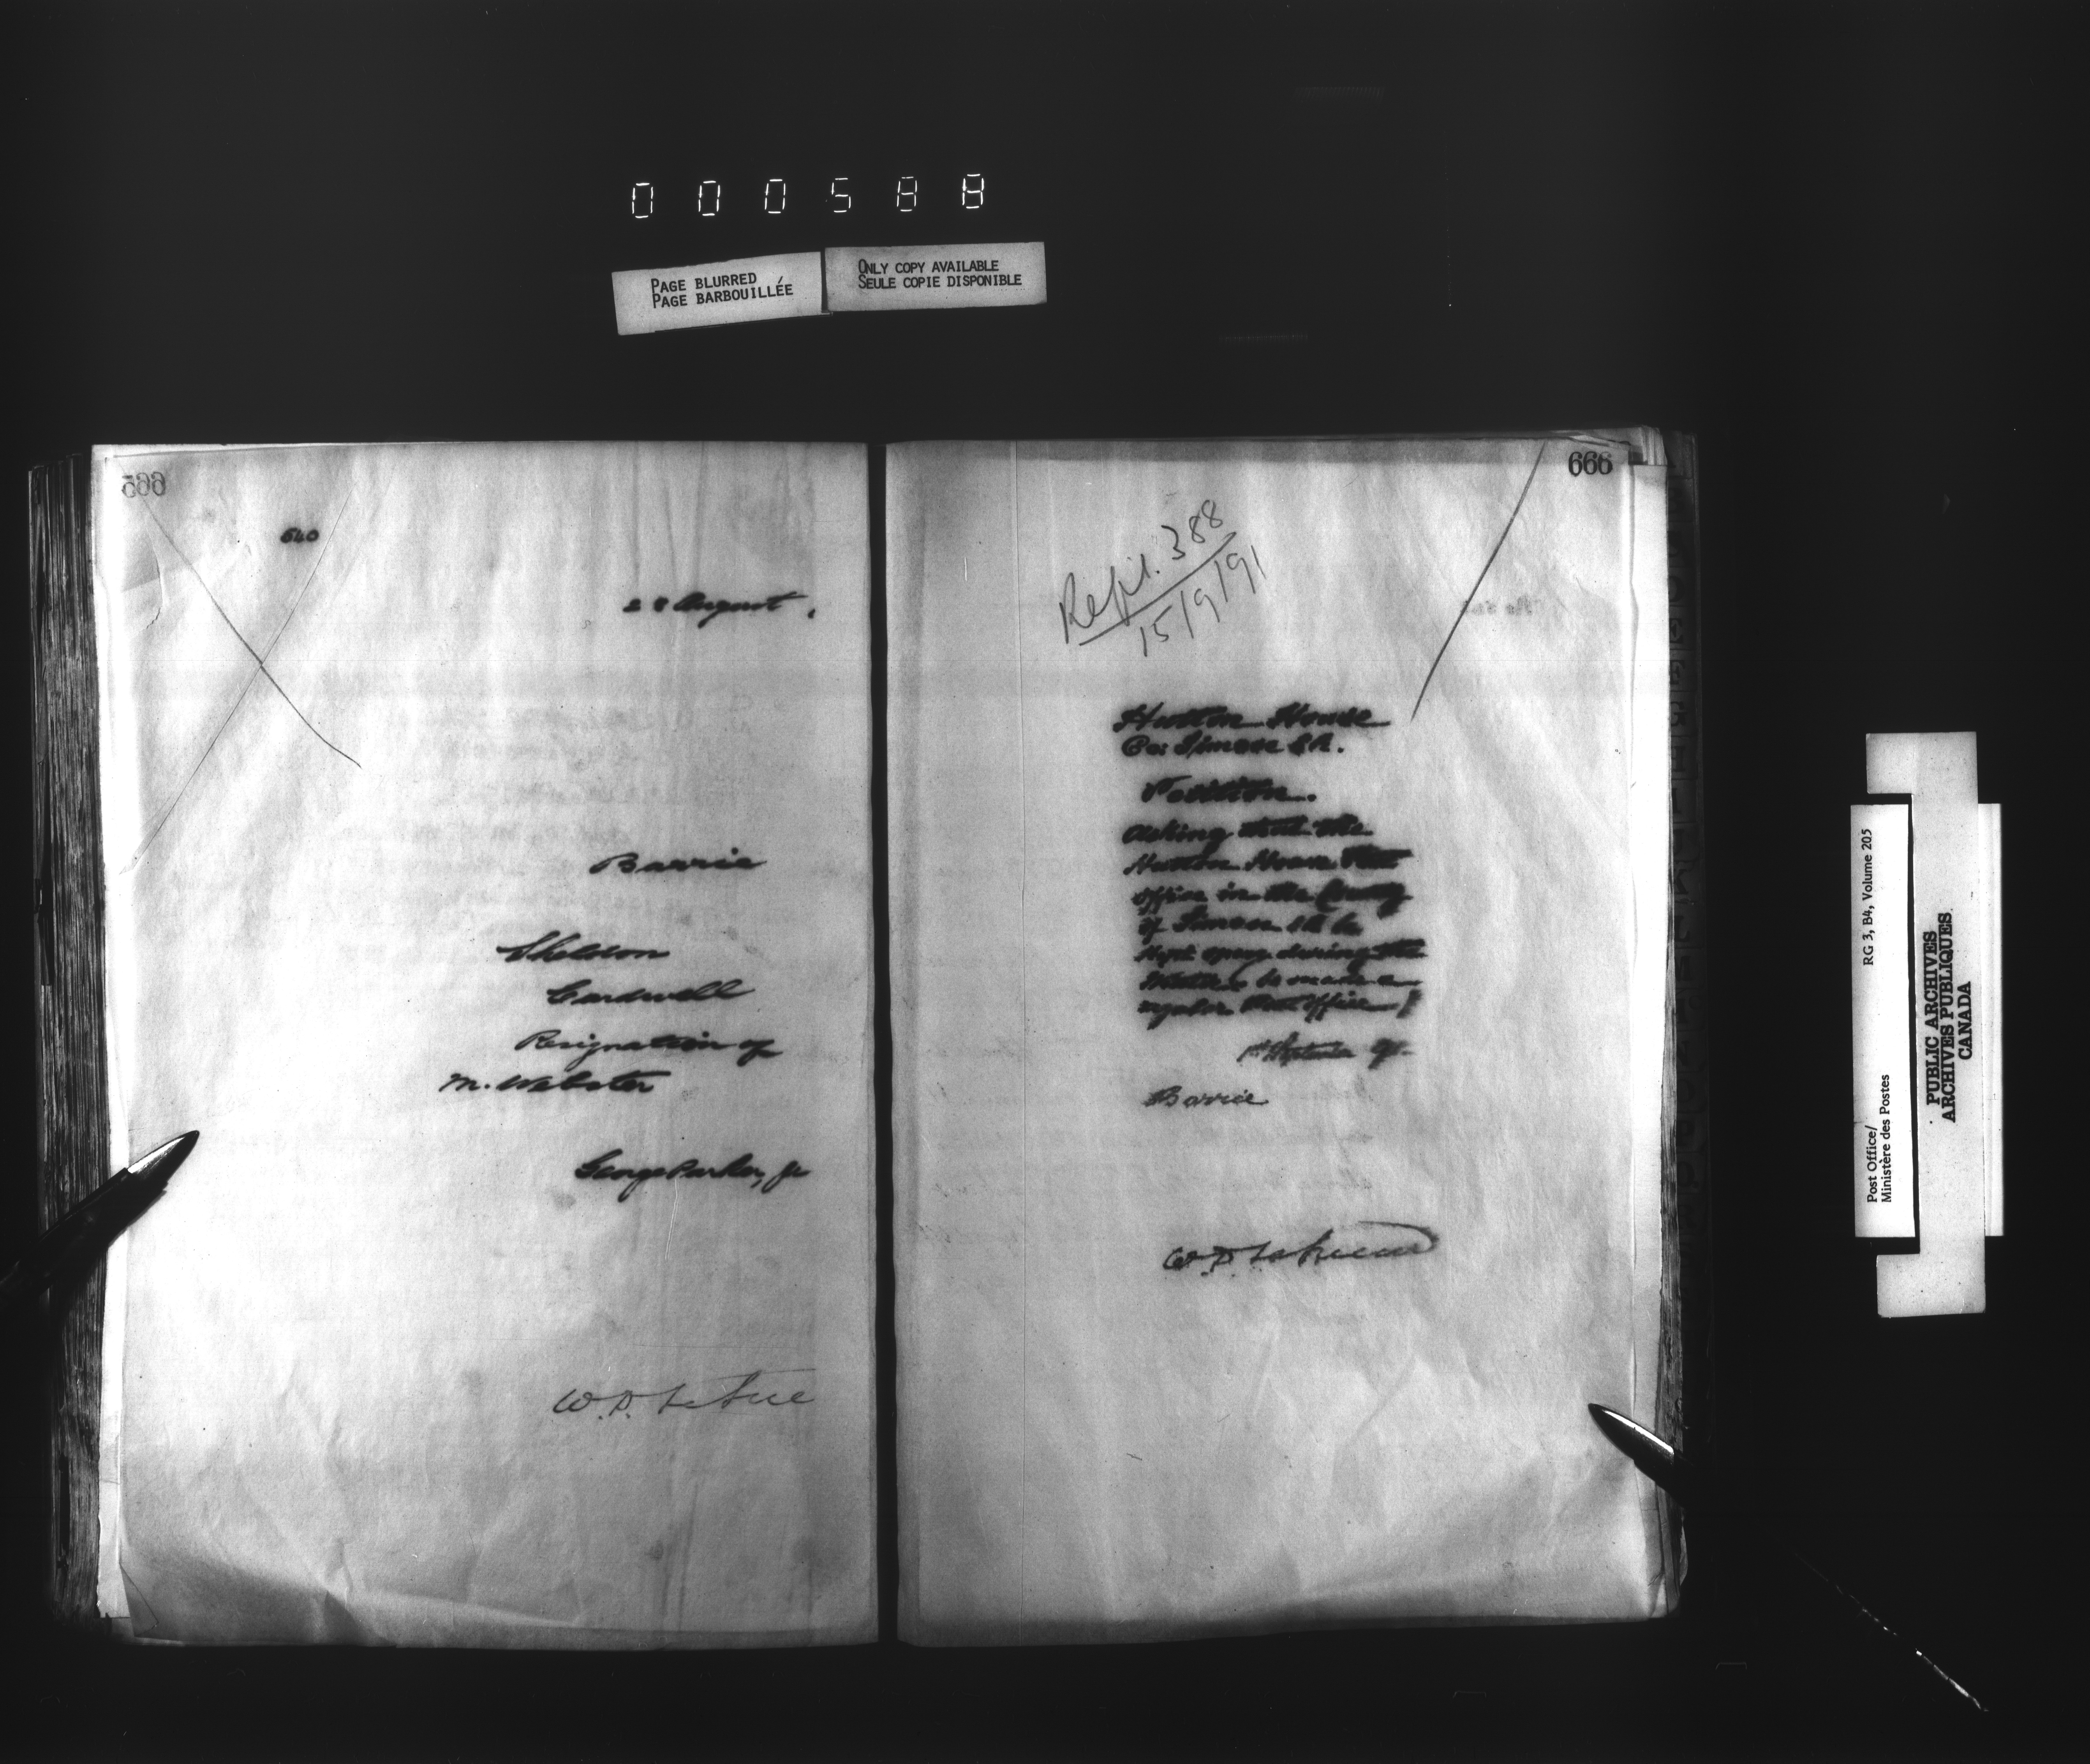 000588
PAGE BLURRED
PAGE BARBOUILLÉE
ONLY COPY AVAILABLE
SEULE COPIE DISPONIBLE
640
28 August,
Barrie
Sheldon
Cardwell
Resignation of
M. Webster
George Parker, Jr
W.D.
666
388
15/9/91
House
Co: Simcoe E.R.
Petition.
Asking that the
House Post
Office in the County
of Simcoe E.R. be
Kept open during the
Winter & be made a
regular Post Office.
1st September 91.
Barrie
Post Office/
Ministère des Postes
RG 3, B4, Volume 205
PUBLIC ARCHIVES
ARCHIVES PUBLIQUES
CANADA